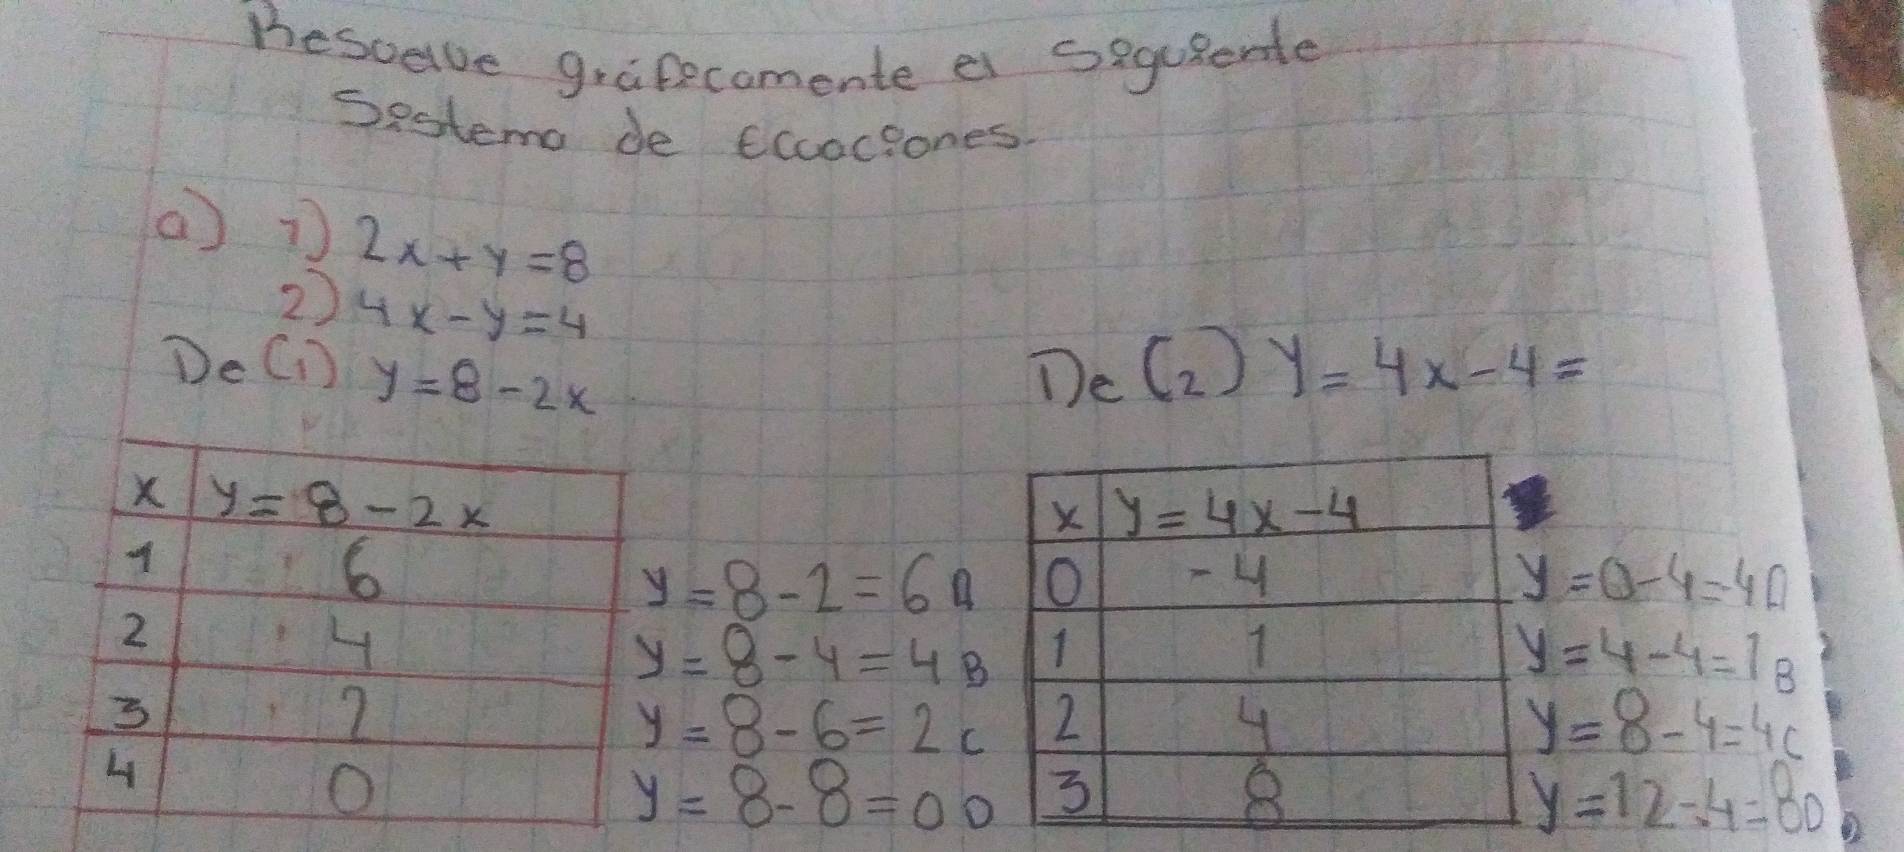 Resuelve gráficamente el siguiente
Sistema de Ecuaciones.
a) 1) 2x+y=8
2) 4x-y=4
De (1) y=8-2x
De (2) y=4x-4=
x y=8-2x
1 6 y=8-2=6 A
2 4 y=8-4=4 B
3 2 y=8-6=2 C
4 0 y=8-8=0 D
x y=4x-4
0 -4 y=0-4=4 A
1 1 y=4-4=1 B
2 4 y=8-4=4 C
3 8 y=12-4=8 D